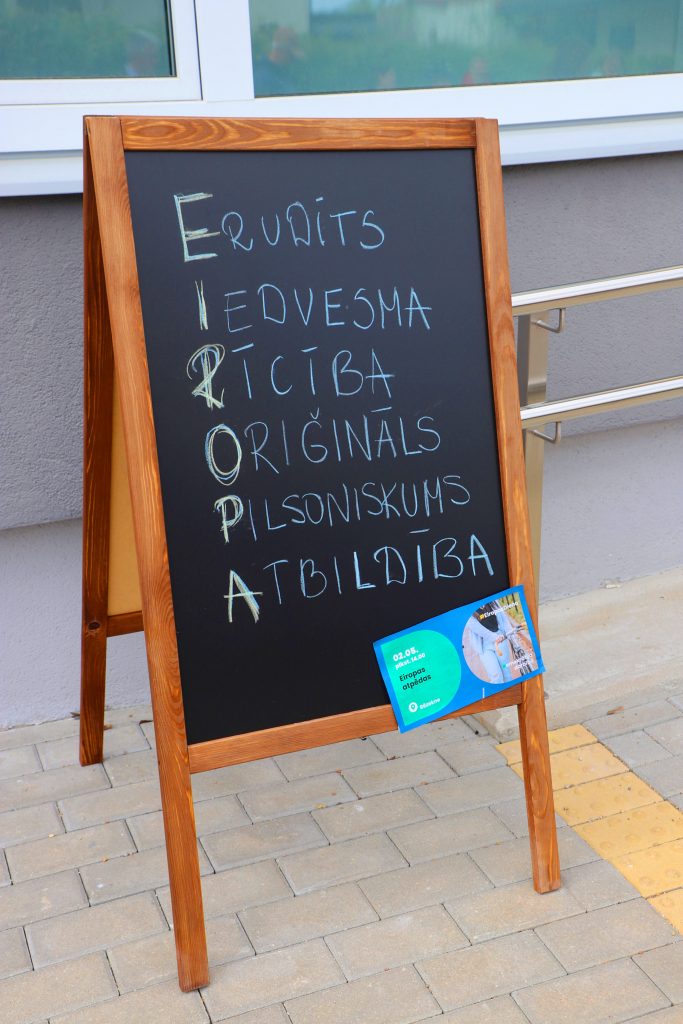 ERUDĪTS
IEDVESMA
RĪCĪBA
ORIĢINĀLS
PILSONISKUMS
ATBILDĪBA
02.05.
plkst. 14.00
Eiropas
atpēdas